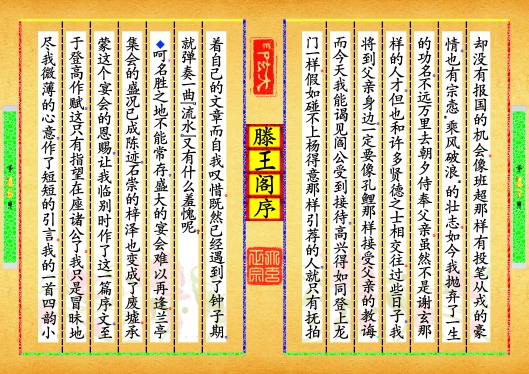 却没有报国的机会像班超那样有投笔从戎的豪
情也有宗悫“乘风破浪”的壮志如今我抛弃了一生
的功名不远万里去朝夕侍奉父亲虽然不是谢玄那
样的人才但也和许多贤德之士相交往过些日子我
将到父亲身边一定要像孔鲤那样接受父亲的教诲
而今天我能谒见阎公受到接待高兴得如同登上龙
门一样假如碰不上杨得意那样引荐的人就只有抚拍
滕王阁序
着自己的文章而自我叹惜既然已经遇到了钟子期
就弹奏一曲[流水]又有什么羞愧呢
呵名胜之地不能常存盛大的宴会难以再逢兰亭
集会的盛况已成陈迹石崇的梓泽也变成了废墟承
蒙这个宴会的恩赐让我临别时作了这一篇序文至
于登高作赋这只有指望在座诸公了我只是冒昧地
尽我微薄的心意作了短短的引言我的一首四韵小